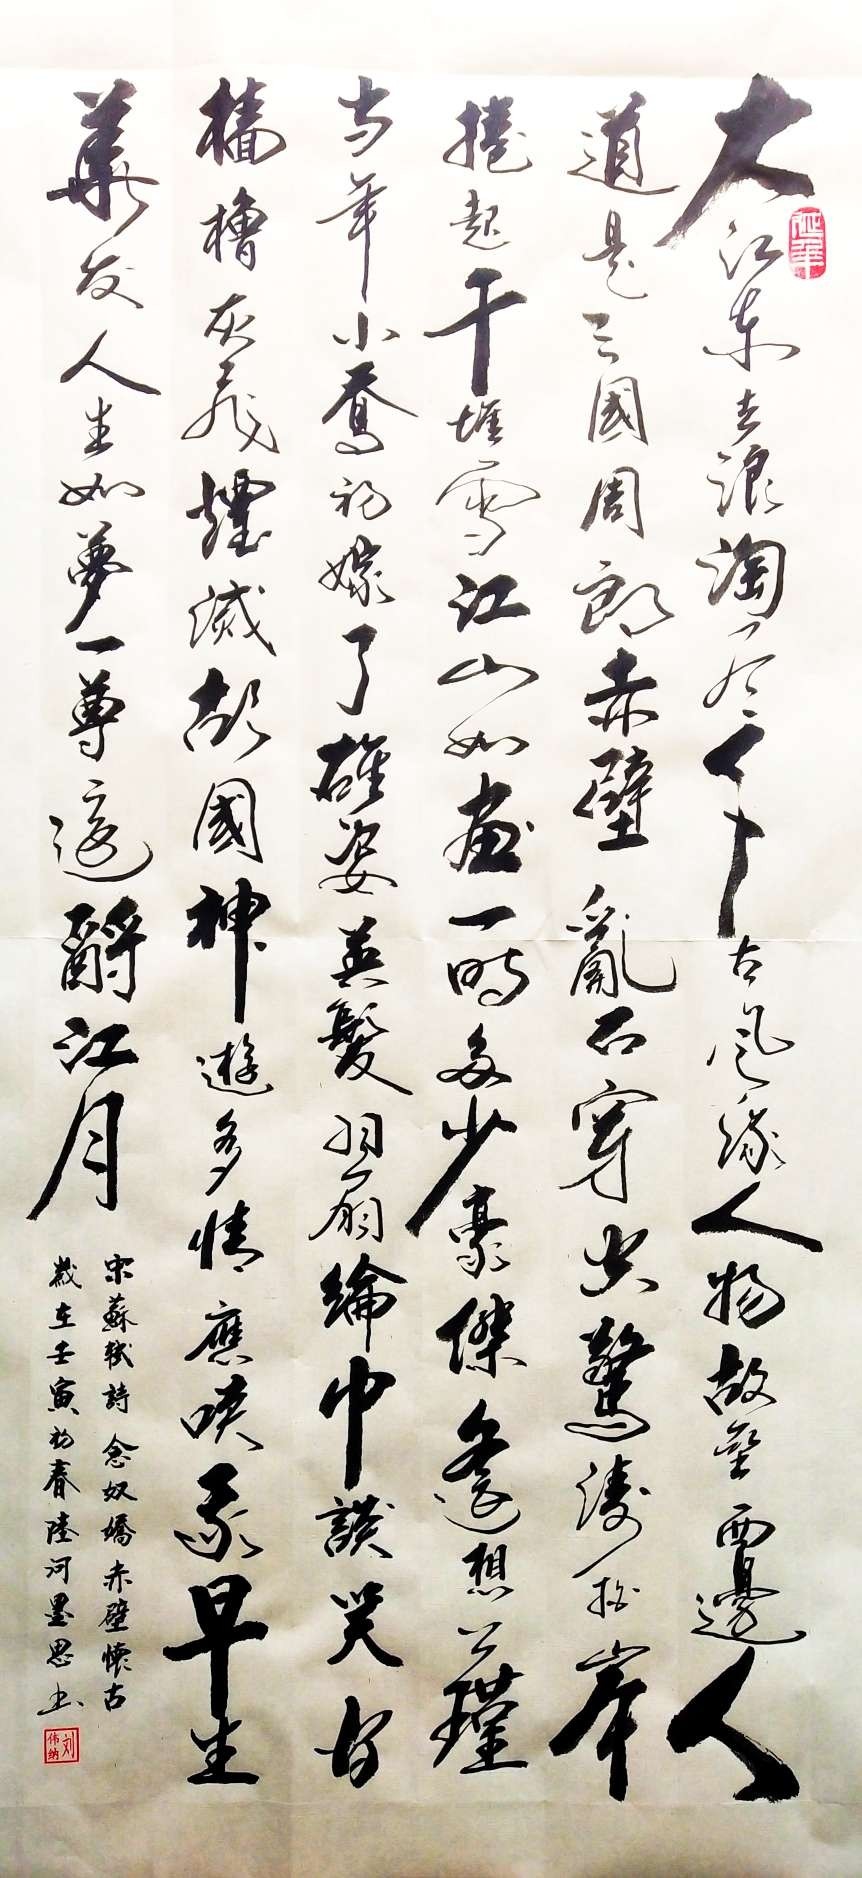 大江東去浪淘尽千古風流人物故壘西邊人
道是三國周郎赤壁亂石穿空驚濤拍岸
捲起千堆雪江山如畫一時多少豪傑遙想公瑾
当年小喬初嫁了雄姿英髮羽扇綸巾談笑间
檣櫓灰飛煙滅故國神遊多情應咲我早生
華发人生如夢一尊還酹江月
宋蘇軾詩念奴嬌赤壁懷古
歲在壬寅初春陸河墨思书
刘伟纳